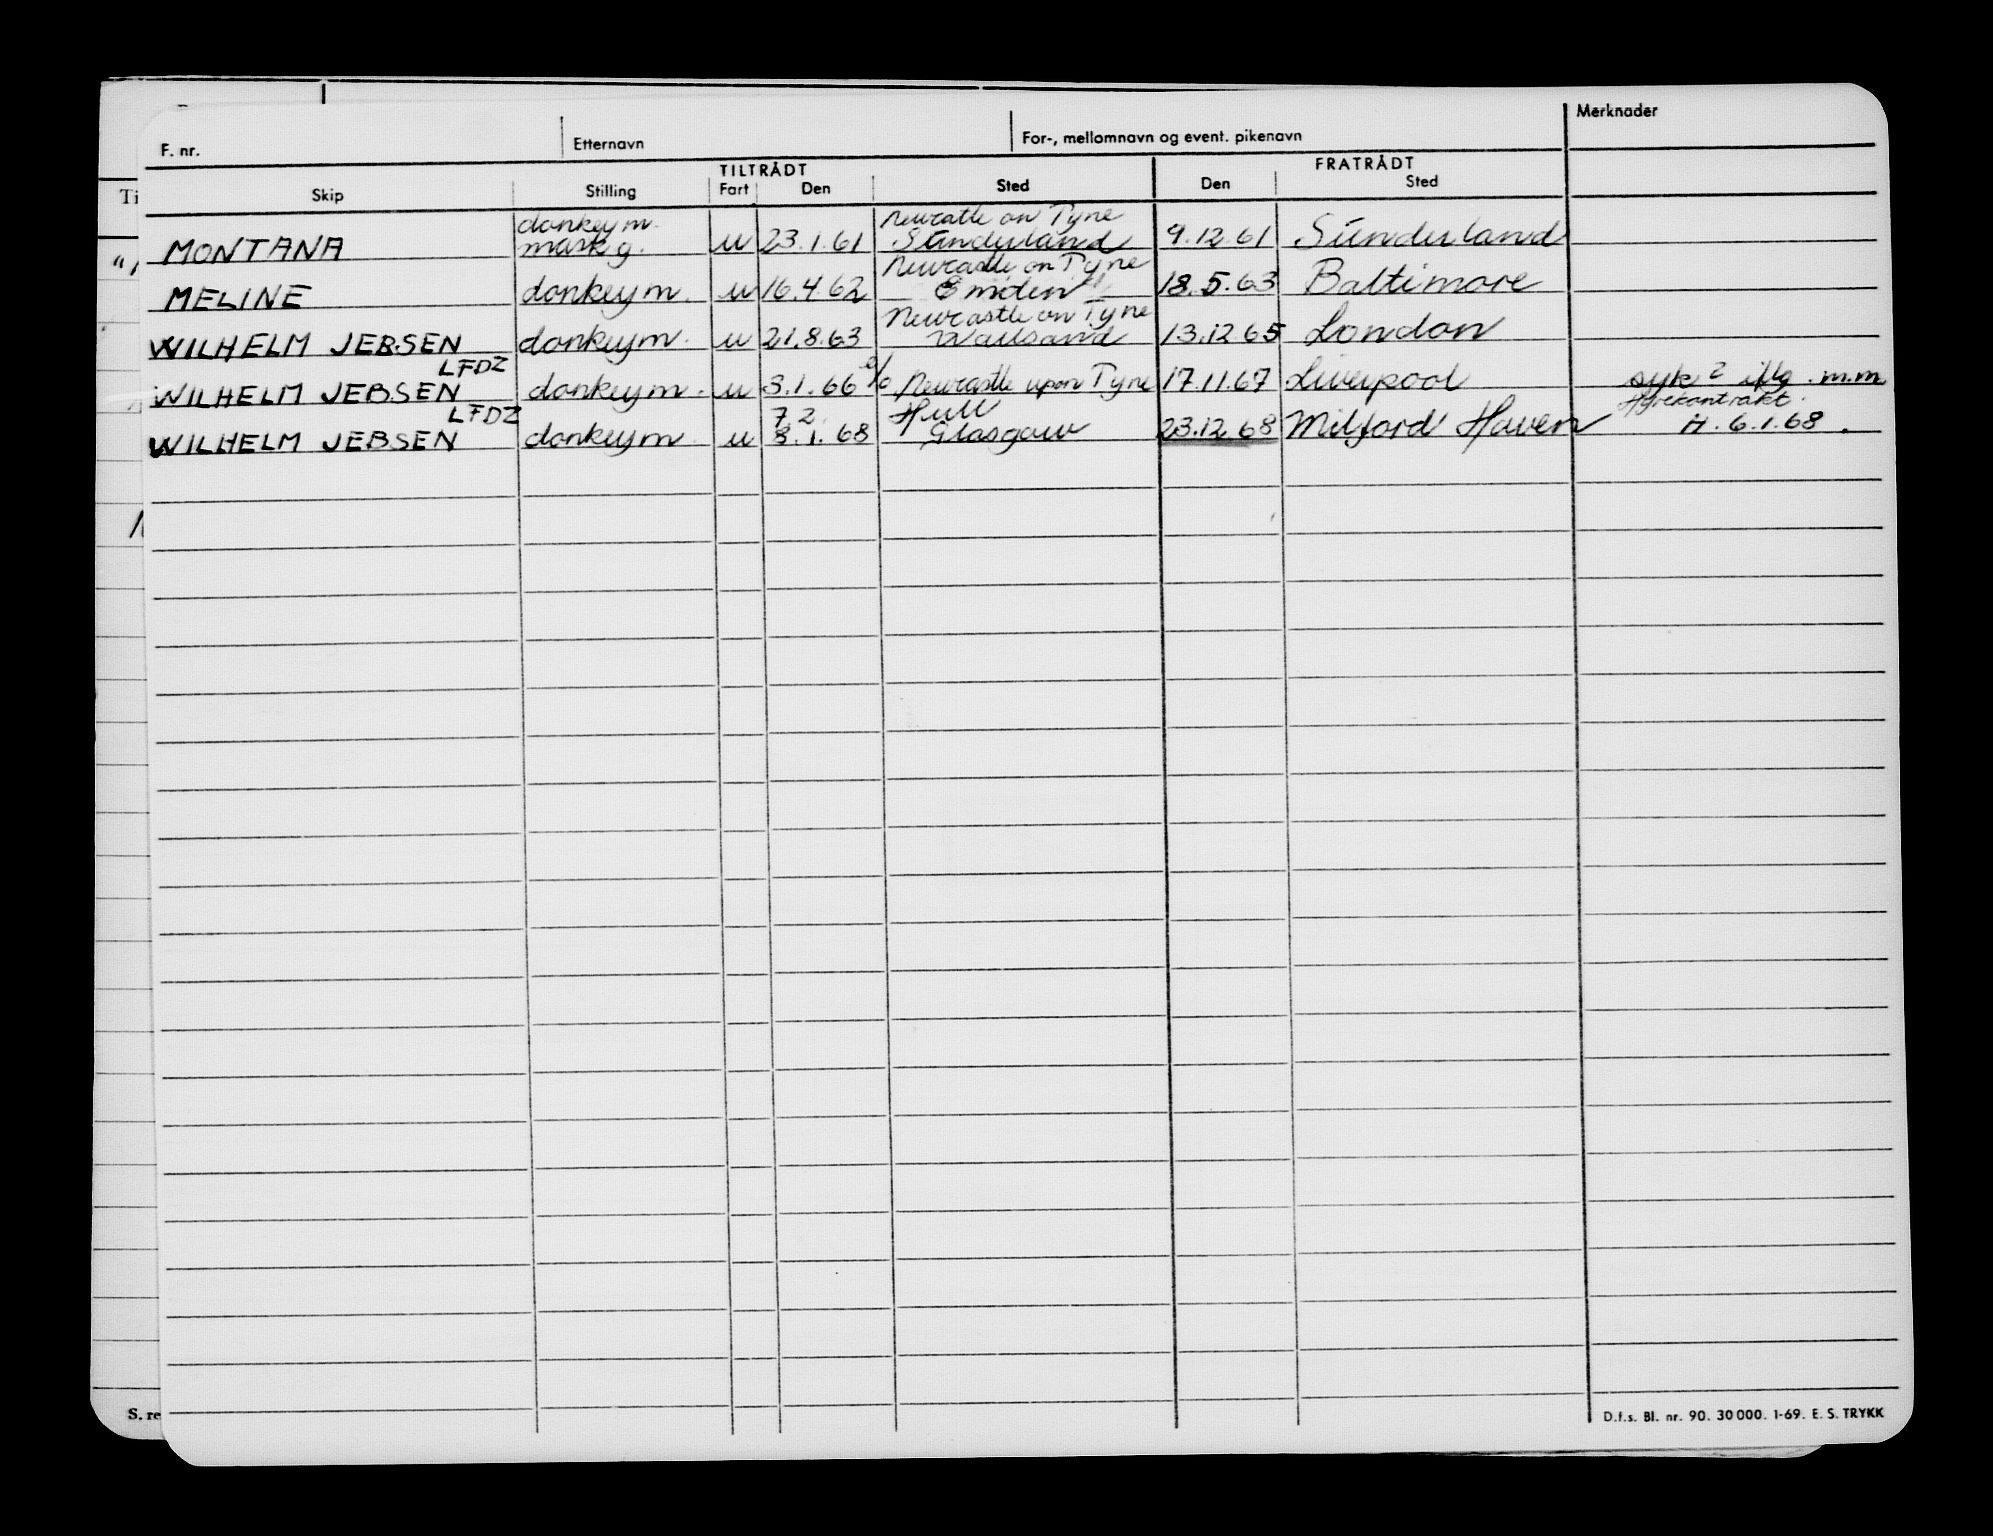 Merknader
F. nr. Etternavn For-, mellomnavn og event. pikenavn
TILTRÅDT FRATRÅDT
Skip Stilling Fart Den Sted Den Sted
donkeym. Newcatle on Tyne
MONTANA maskg. u 23.1.61 Sunderland 9.12.61 Sunderland
Newcastle on Tyne
MELINE donkeym. u 16.4.62 Emden 18.5.63 Baltimore
Newcastle on Tyne
WILHELM JEBSEN donkeym. u 21.8.63 13.12.65 London
LFDZ
WILHELM JEBSEN donkeym. u 3.1.66 Newcastle upon Tyne 17.11.67 Liverpool syk? iflg. m.m
LFDZ 7 2 Hull Hyrekontrakt.
WILHELM JEBSEN donkeym u 8.1.68 Glasgow 23.12.68 Milford Haven H. 6.1.68.
Ti
S. re
D.f.s. Bl. nr. 90. 30 000. 1-69. E. S. TRYKK